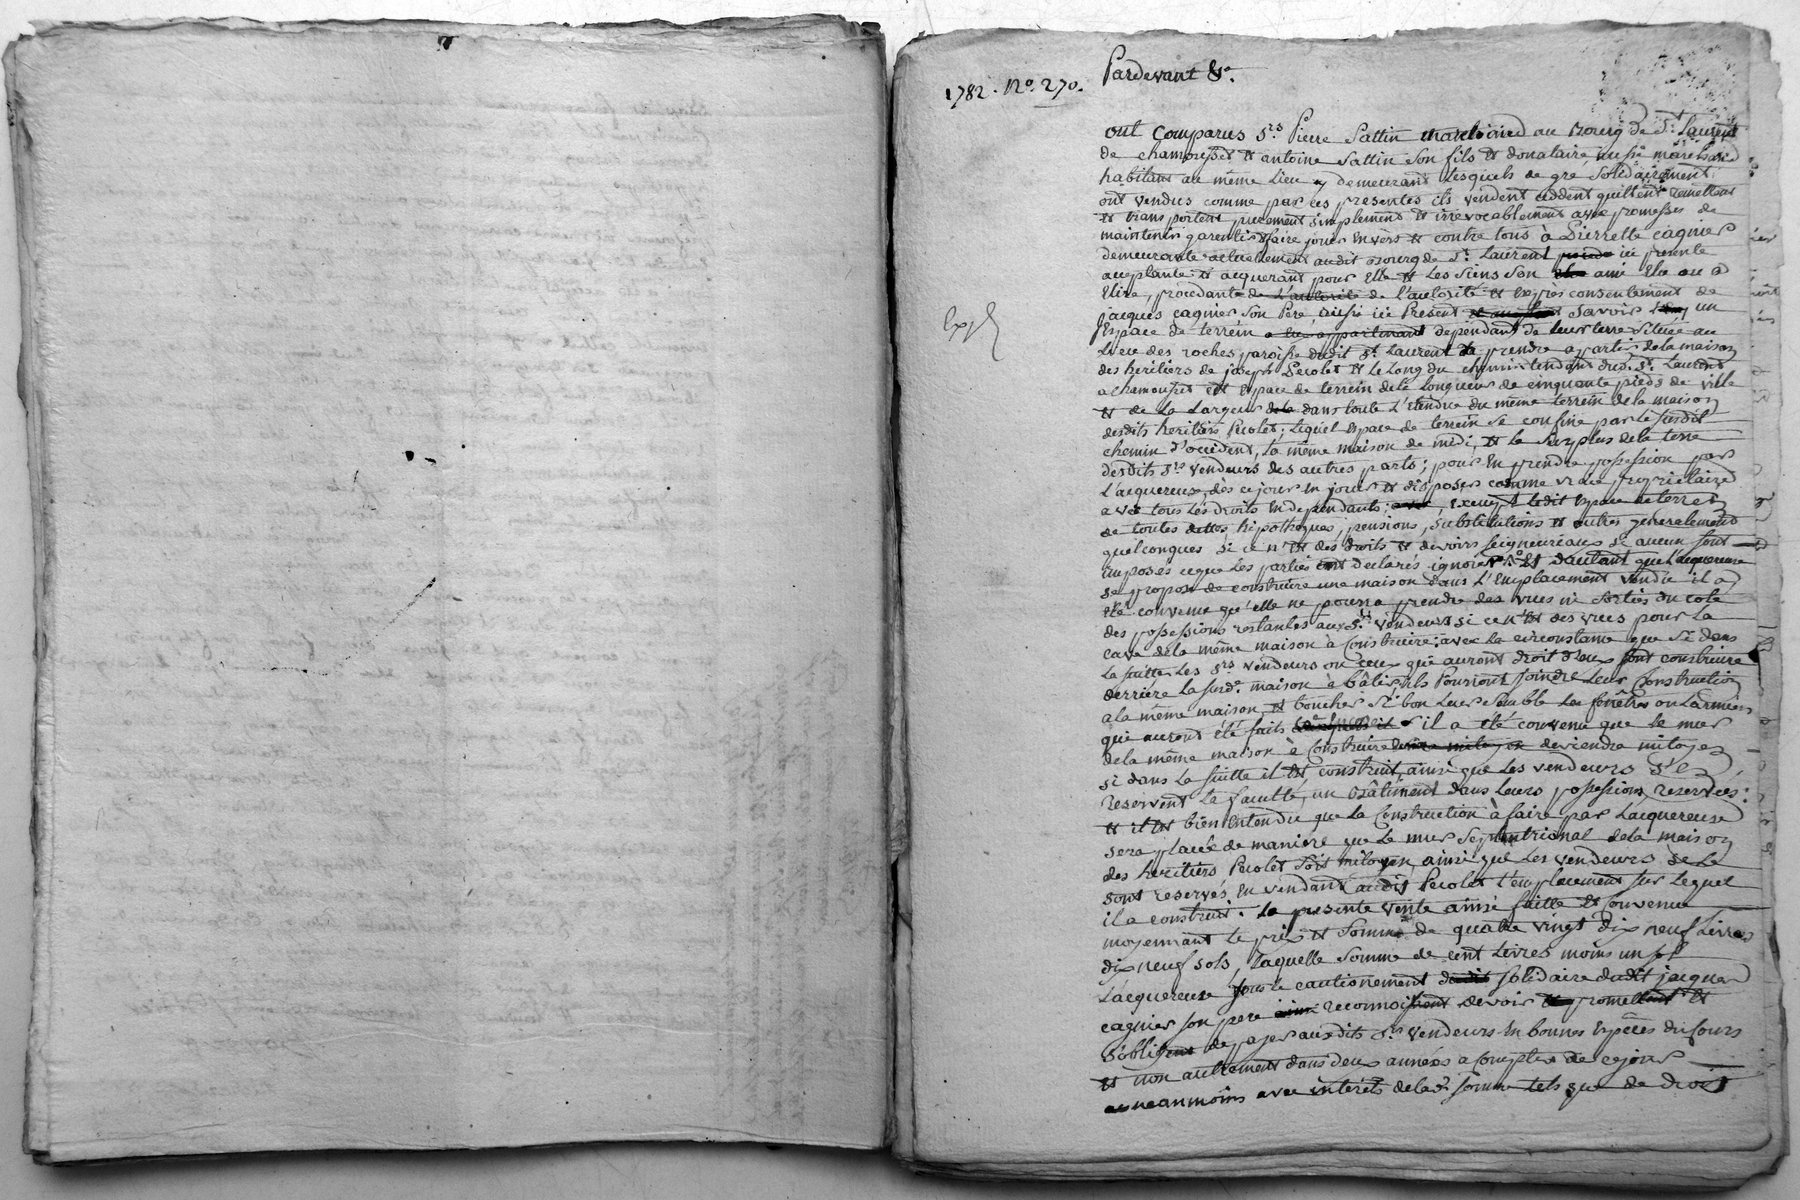 1782. N.º 270.
Pardevant &a.
ont Comparus Srs. Pierre Sattin marchand au Bourg de St. Laurent
de chamousset & antoine Sattin Son fils & donataire aussi marchand
habitans au même Lieu y demeurant Lesquels de gré Solidairement
ont vendus comme par ces presentes ils vendent cèddent quittent remettent
& transportent purement simplement & irrevocablement avec promesses de
maintenir garentir & faire jouir Envèrs & contre tous à Pierrette cagnier
demeurante actuellement audit Bourg de St. Laurent ici presente
acceptante & acquerant pour Elle & Les Siens Son ami Elu ou à
Elire, procédante de L'autorité de l'autorité & Exprès consentement de
jacques cagnier Son Père aussi ici Present Savoir un
Expé
Espace de terrein dependant de leur terre Située au
Lieu des roches paroisse dudit St. Laurent à prendre a partir de la maison
des heritiers de joseph Pecolet & Le Long du chemin tendant dud. St. Laurent
a chamousset cet Espace de terrein de la Longueur de cinquante pieds de ville
& de La Largeur dans toute L'étendue du même terrein de la maison
desdits heritiers Pecolet; Lequel Espace de terrein Se confine par Le susdit
chemin d'occident, La même maison de midi, & le Surplus de la terre
desdits Srs. vendeurs des autres parts; pour En prendre possession par
L'acquereuse, dès ce jour En jouir & disposer comme vraie propriétaire
avec tous Les droits En dependants; Exempt ledit Espace de terrein
de toutes dettes, hipothèques, pensions, substitutions & autres generalement
quelconques, si ce n'est des droits & devoirs seigneuriaux si aucun sont
imposés ce que Les parties ont declarés ignorer; Et d'autant que L'acquereuse
se propose de construire une maison dans L'Emplacement vendu il a
été convenu qu'elle ne pourra prendre des vues ni Sorties du coté
des possessions restantes aux Srs. vendeurs si ce n'est des vues pour la
cave de la même maison à Construire: avec la circonstance que Si dans
La suitte Les Srs. vendeurs ou ceux qui auront droit d'eux font construire
derrière La susde. maison à bâtir, ils Pourront joindre Leur Construction
a la même maison, & boucher si bon Leur Semble Les fenêtres ou Larmiers
qui auront été faits il a été convenu que le mur
de la même maison à Construire deviendra mitoyen
si dans La suitte il est construit, ainsi que Les vendeurs S'en
reservent La faculté, un Bâtiment dans Leurs possessions reservées:
& il est bien Entendu que La Construction à faire par L'acquereuse
sera placée de manière que Le mur Septentrional de la maison
des heritiers Pecolet Soit mitoyen, ainsi que Les vendeurs Se Le
sont reservés En vendant audit Pecolet L'emplacement Sur Lequel
il a construit. La presente vente ainsi faitte & Convenue
moyennant Le prix & Somme de quatre vingt dix neuf Livres
dix neuf sols, Laquelle Somme de cent Livres moins un sol
L'acquereuse Sous le cautionement solidaire dudit jacques
cagnier son pere reconnoissent devoir promettent &
s'obligent de payer auxdits Srs. vendeurs En bonnes Espèces du cours
& non autrement dans deux années a Compter de ce jour
neanmoins avec interêts de lade. somme tels que de droit